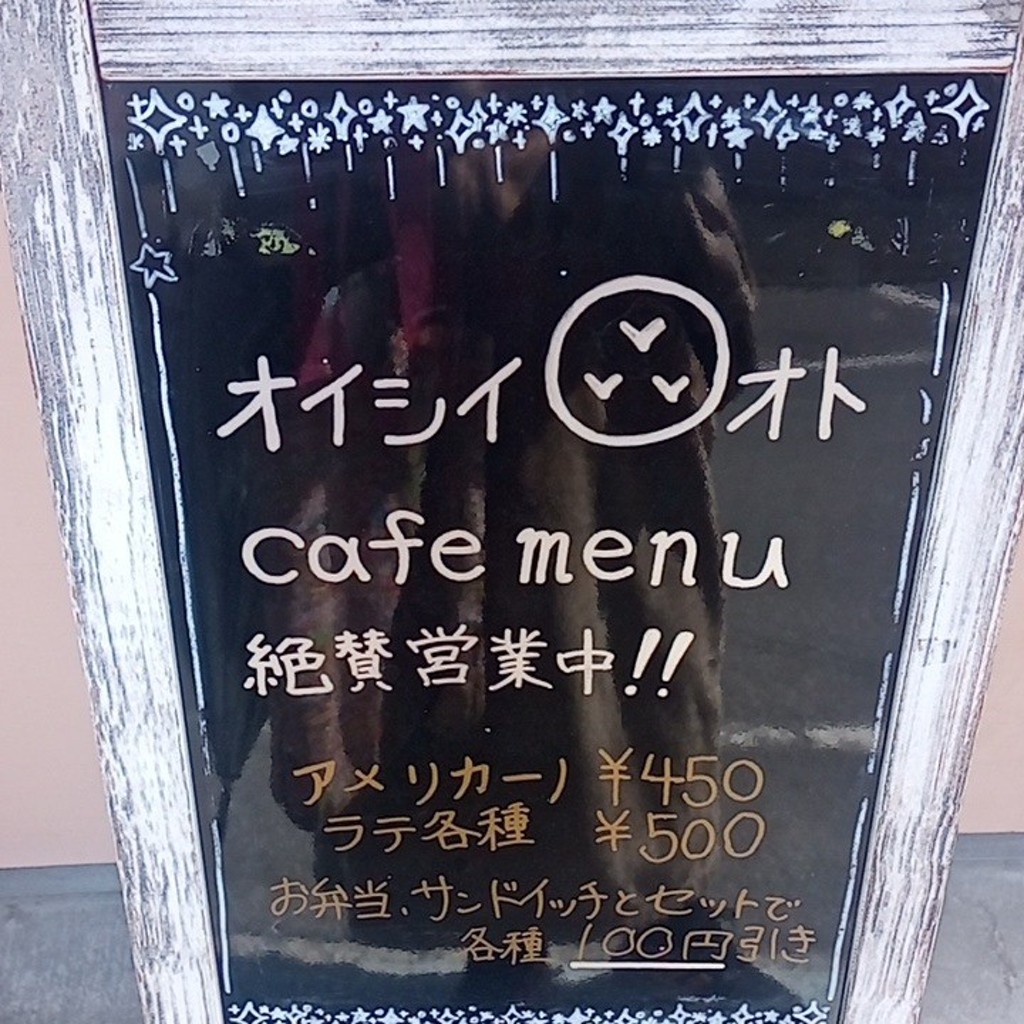 オイシイ オト
cafe menu
絶賛営業中!!
アメリカーノ ¥450
ラテ各種 ¥500
お弁当、サンドイッチとセットで
各種 100円引き